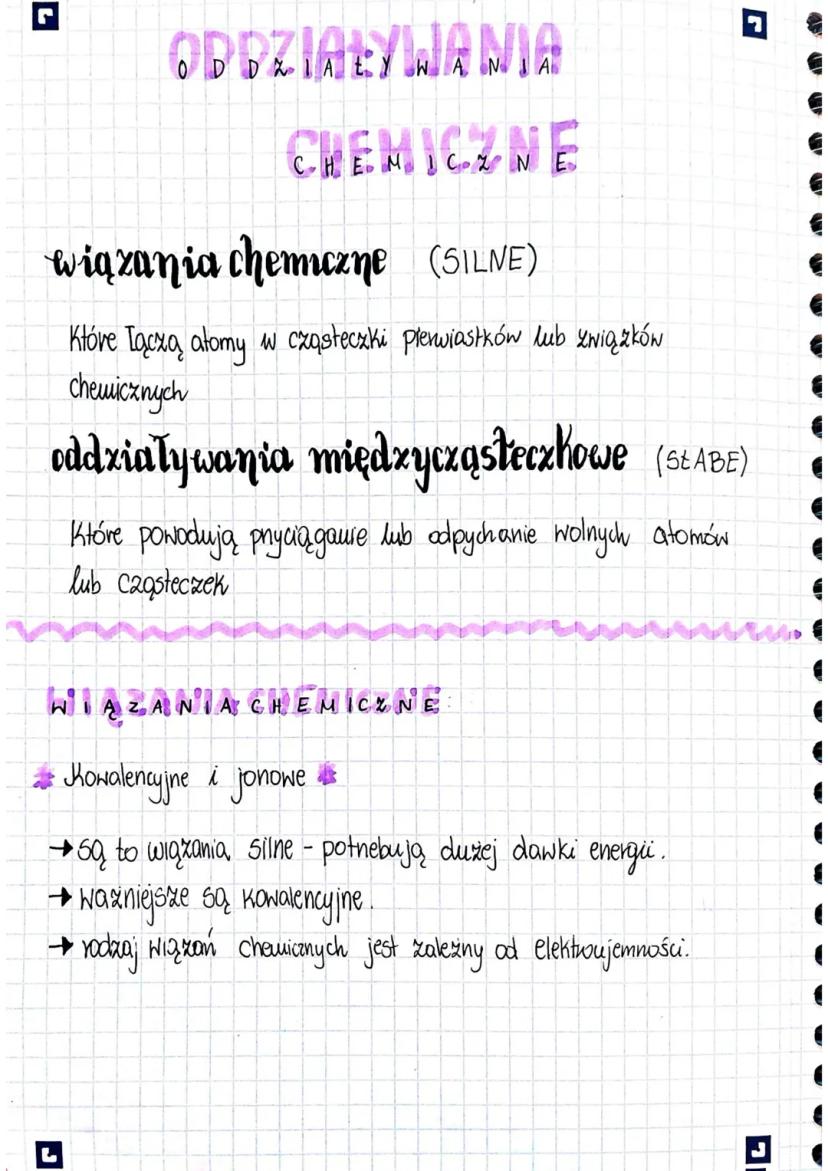 ODDZIAŁYWANIA
CHEMICZNE
wiązania chemiczne (SILNE)
Które łączą atomy w cząsteczki pierwiastków lub związków
chemicznych
oddziaływania międzycząsteczkowe (SŁABE)
Które powodują przyciąganie lub odpychanie wolnych atomów
lub cząsteczek
WIĄZANIA CHEMICZNE:
* Kowalencyjne i jonowe *
→ są to wiązania silne - potrzebują dużej dawki energii.
→ ważniejsze są kowalencyjne.
→ rodzaj wiązań chemicznych jest zależny od elektroujemności.